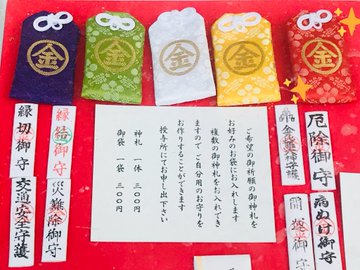 金
金
金
金
金
厄除御守
病ぬけ御守
ご希望の御祈願の御神札を
お好みのお袋にお入れします
複数の御神札をお入れでき
ますので ご自分用のお守りを
お作りすることができます
授与所にてお申し出下さい
神札 一体 三〇〇円
御袋 一袋 三〇〇円
縁結御守
災難除御守
縁切御守
交通安全守護